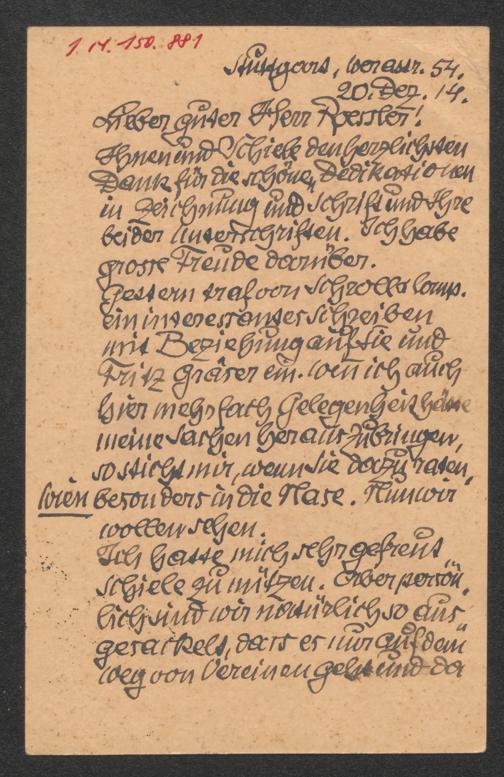 1.14.150.881
Stuttgart, Werastr. 54.
20. Dez. 14.
Lieber guter Herr Roessler!
Ihnen und Schiele den herzlichsten
Dank für die schönen Dedikationen
in Zeichnung und Schrift und Ihre
beider Unterschriften. Ich habe
grosse Freude darüber.
Gestern traf von Schroll & Comp.
ein interessantes Schreiben
mit Beziehung auf Sie und
Fritz Gräser ein. Wen̄ ich auch
hier mehrfach Gelegenheit hätte
meine Sachen herauszubringen,
so sticht mir, wenn Sie dazu raten,
Wien besonders in die Nase. Nun wir
wollen sehen.
Ich hatte mich sehr gefreut
Schiele zu nützen. Aber persön-
lich sind wir natürlich so aus-
gesackelt, dass es nur auf dem
Weg von Vereinen geht und da